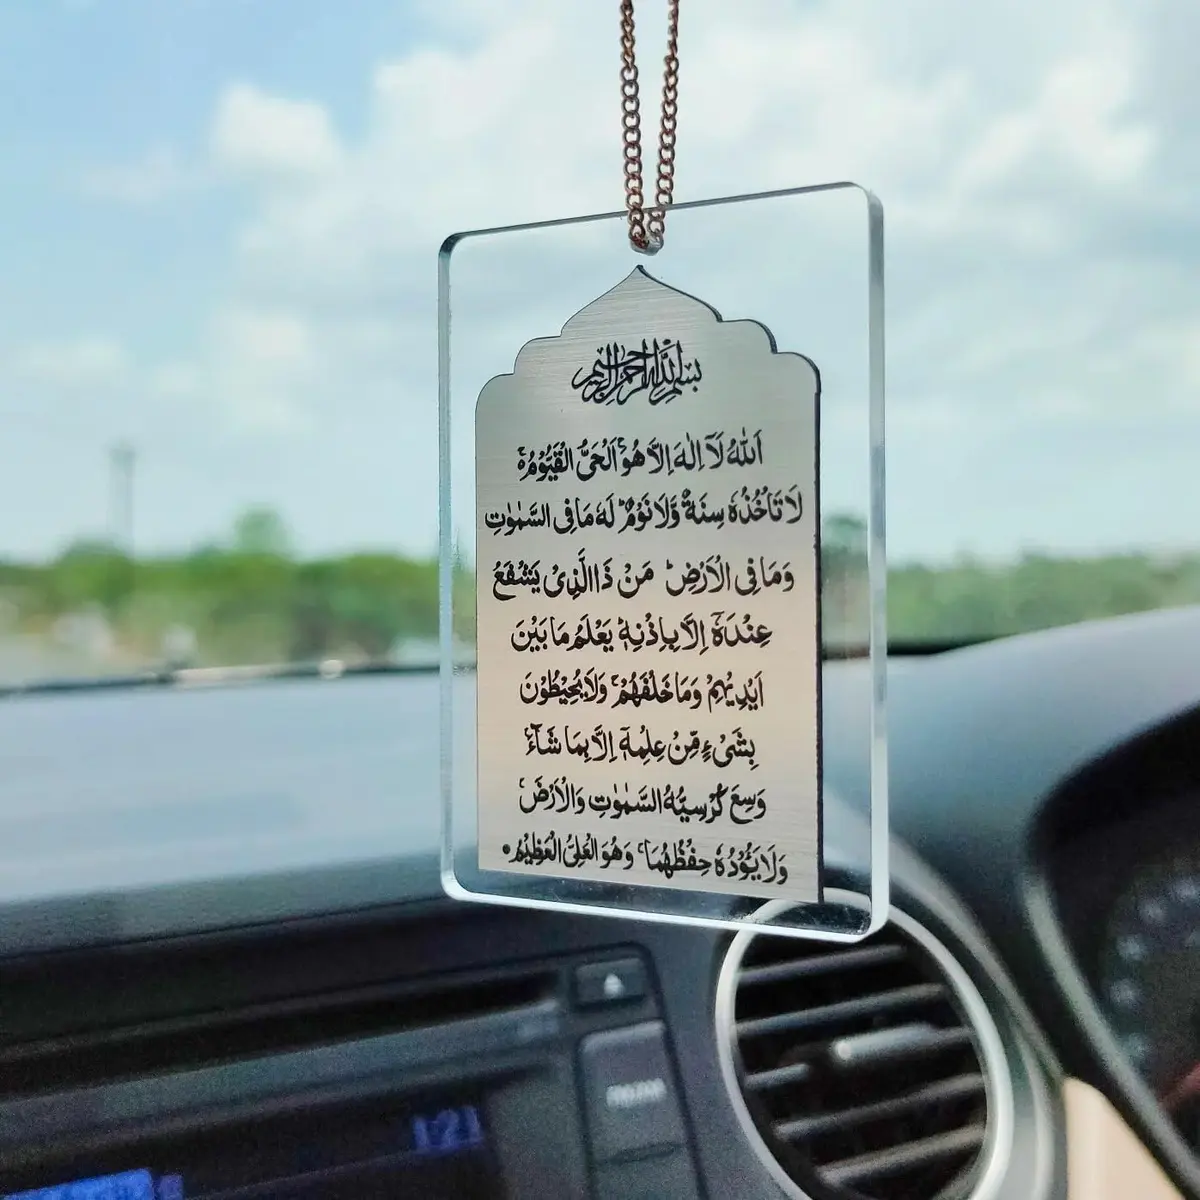 بسم الله الرحمن الرحيم
اَللّٰهُ لَآ اِلٰهَ اِلَّا هُوَ ۚ اَلْحَىُّ الْقَيُّوْمُ ۚ
لَا تَاْخُذُهٗ سِنَةٌ وَّلَا نَوْمٌ ؕ لَهٗ مَا فِى السَّمٰوٰتِ
وَمَا فِى الْاَرْضِ ؕ مَنْ ذَا الَّذِىْ يَشْفَعُ
عِنْدَهٗٓ اِلَّا بِاِذْنِهٖ ؕ يَعْلَمُ مَا بَيْنَ
اَيْدِيْهِمْ وَمَا خَلْفَهُمْ ۚ وَلَا يُحِيْطُوْنَ
بِشَىْءٍ مِّنْ عِلْمِهٖٓ اِلَّا بِمَا شَآءَ ۚ
وَسِعَ كُرْسِيُّهُ السَّمٰوٰتِ وَالْاَرْضَ ۚ
وَلَا يَــُٔوْدُهٗ حِفْظُهُمَا ۚ وَهُوَ الْعَلِىُّ الْعَظِيْمُ
1:21